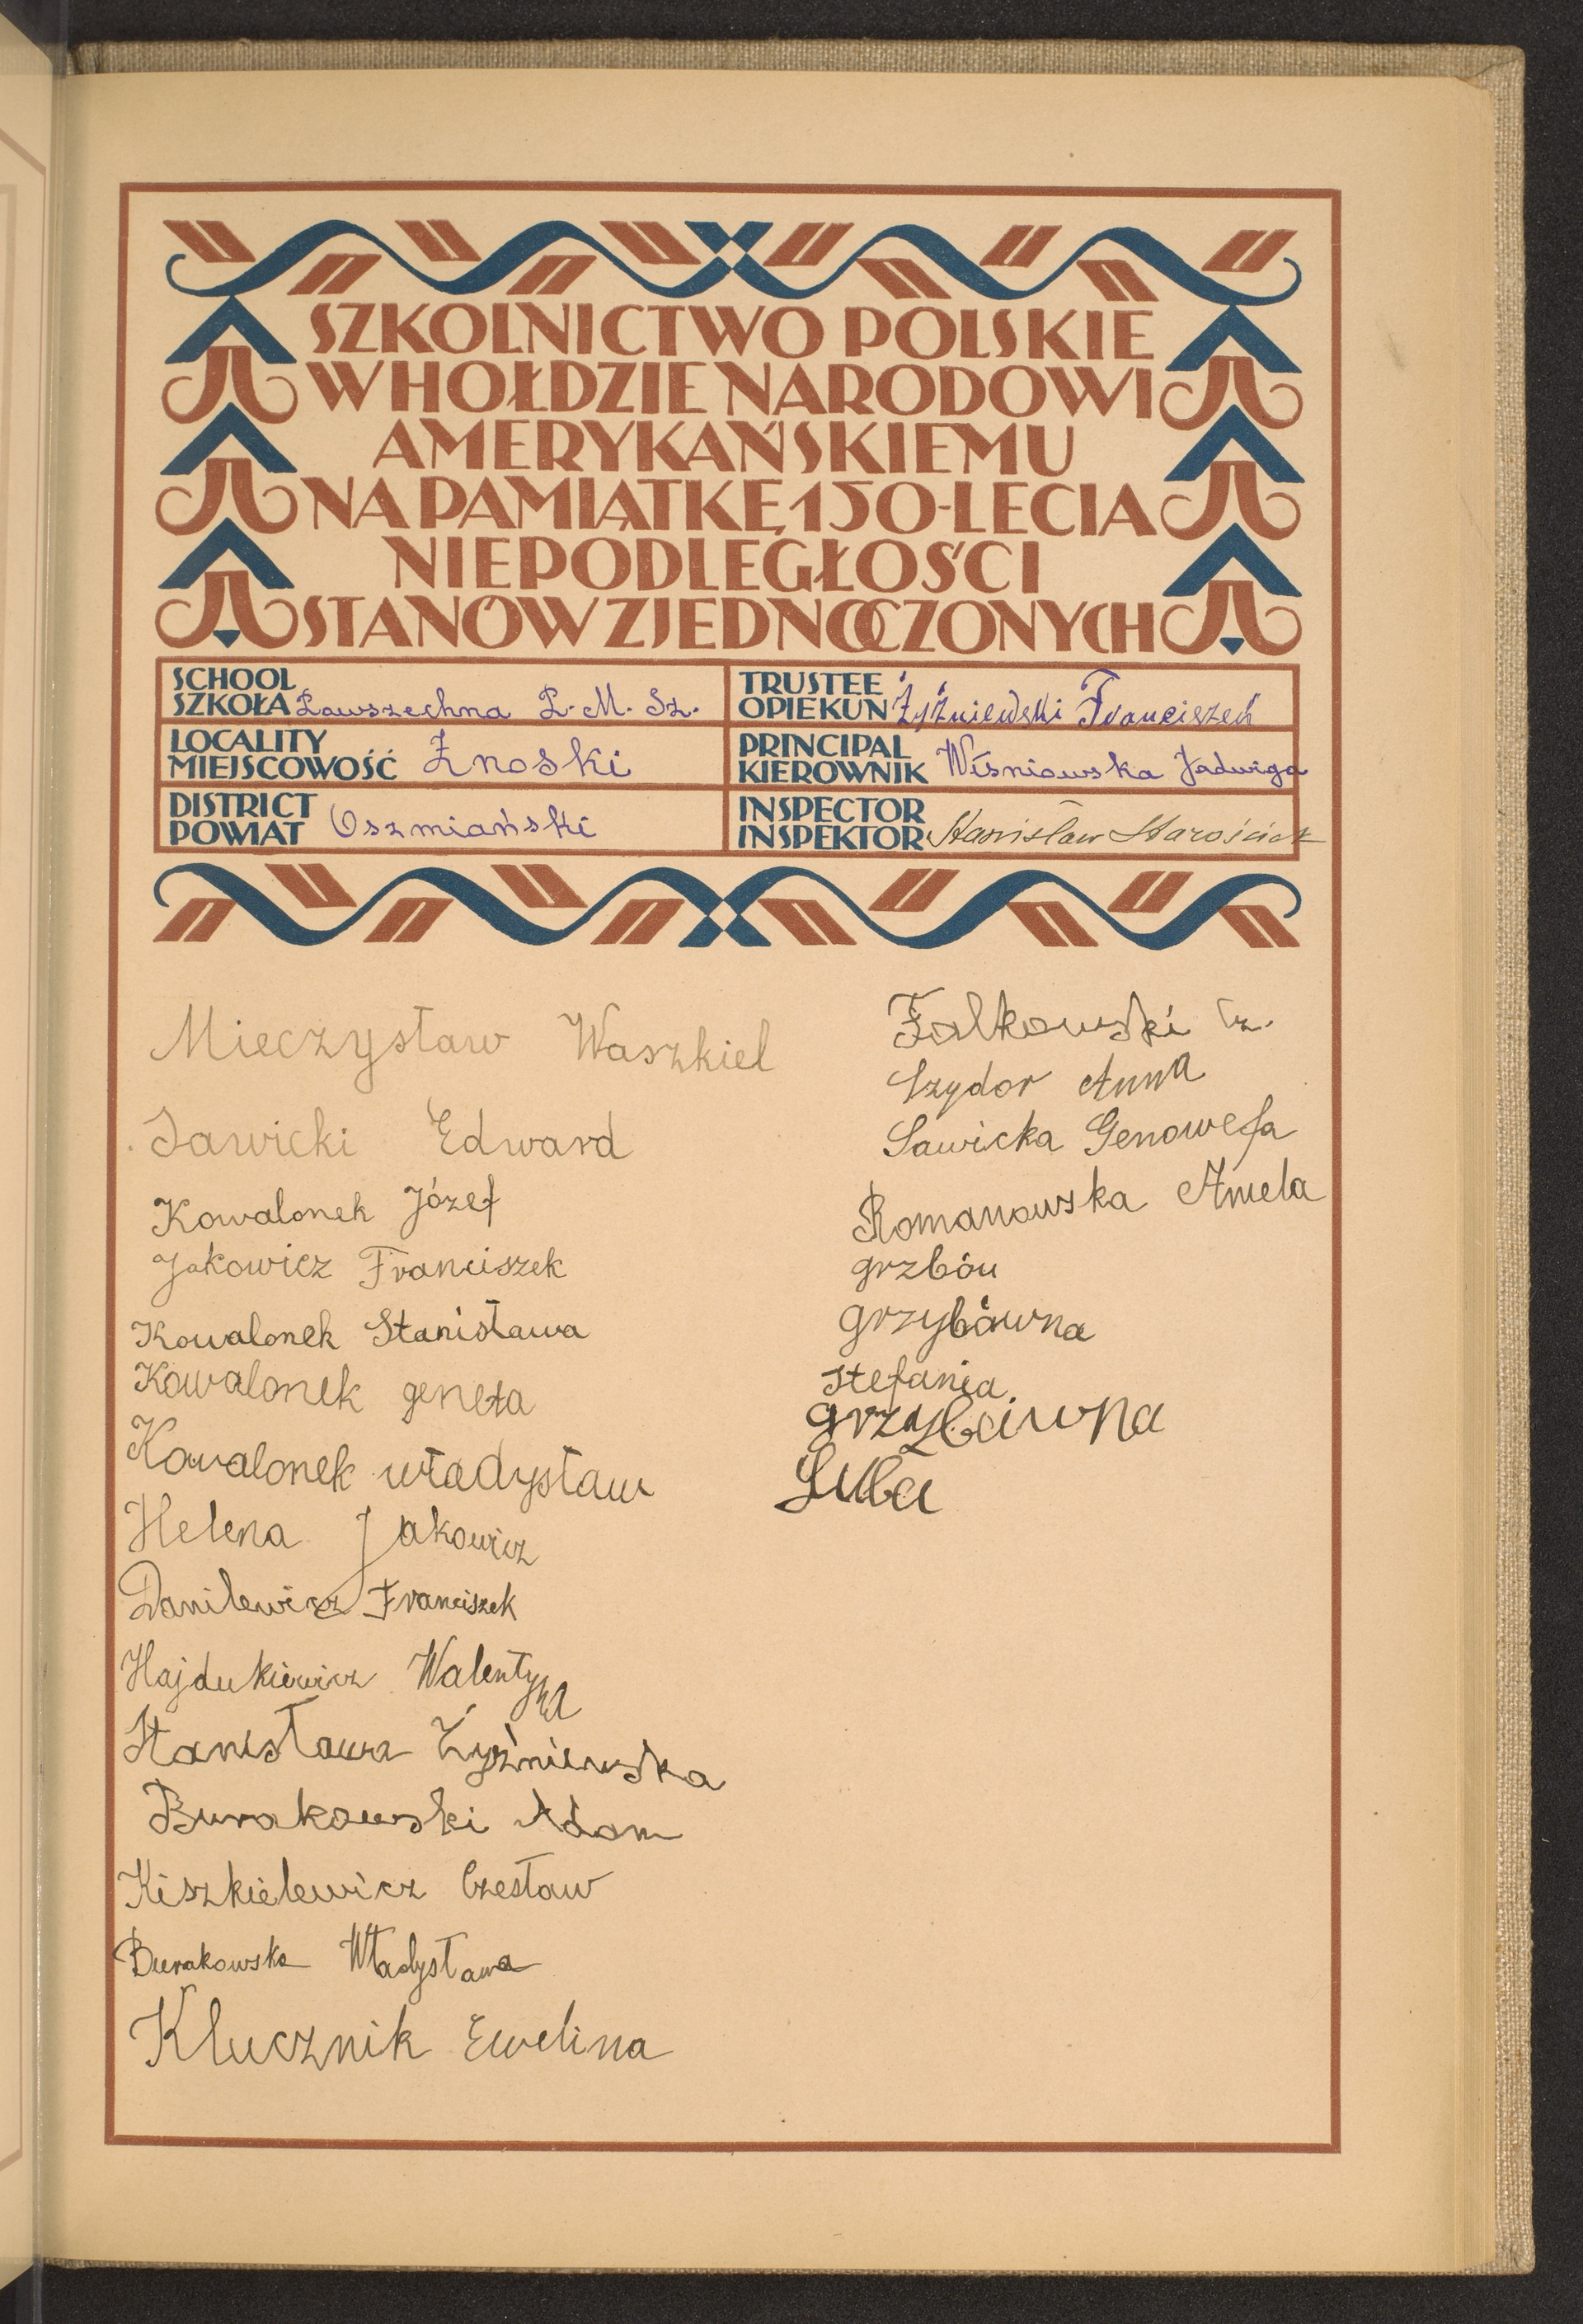 SZKOLNICTWO POLSKIE
W HOŁDZIE NARODOWI
AMERYKAŃSKIEMU
NA PAMIĄTKĘ 150-LECIA
NIEPODLEGŁOŚCI
STANÓW ZJEDNOCZONYCH
SCHOOL
SZKOŁA Powszechna P. M. Sz.
LOCALITY
MIEJSCOWOŚĆ Żnoski
DISTRICT
POWIAT Oszmiański
TRUSTEE
OPIEKUN Żyźniewski Franciszek
PRINCIPAL
KIEROWNIK Wiśniowska Jadwiga
INSPECTOR
INSPEKTOR Stanisław Starościak
Mieczysław Waszkiel
Sawicki Edward
Kowalonek Józef
Jakowicz Franciszek
Kowalonek Stanisława
Kowalonek geneta
Kowalonek władysław
Helena Jakowicz
Danilewicz Franciszek
Hajdukiewicz Walentyna
Stanisława Żyźniewska
Burakowski Adam
Kiszkielewicz Czesław
Burakowska Władysława
Klucznik Ewelina
Falkowski Cz.
Szydor Anna
Sawicka Genowefa
Romanowska Amela
grzbóu
grzybówna
stefania
grzybówna
Luba